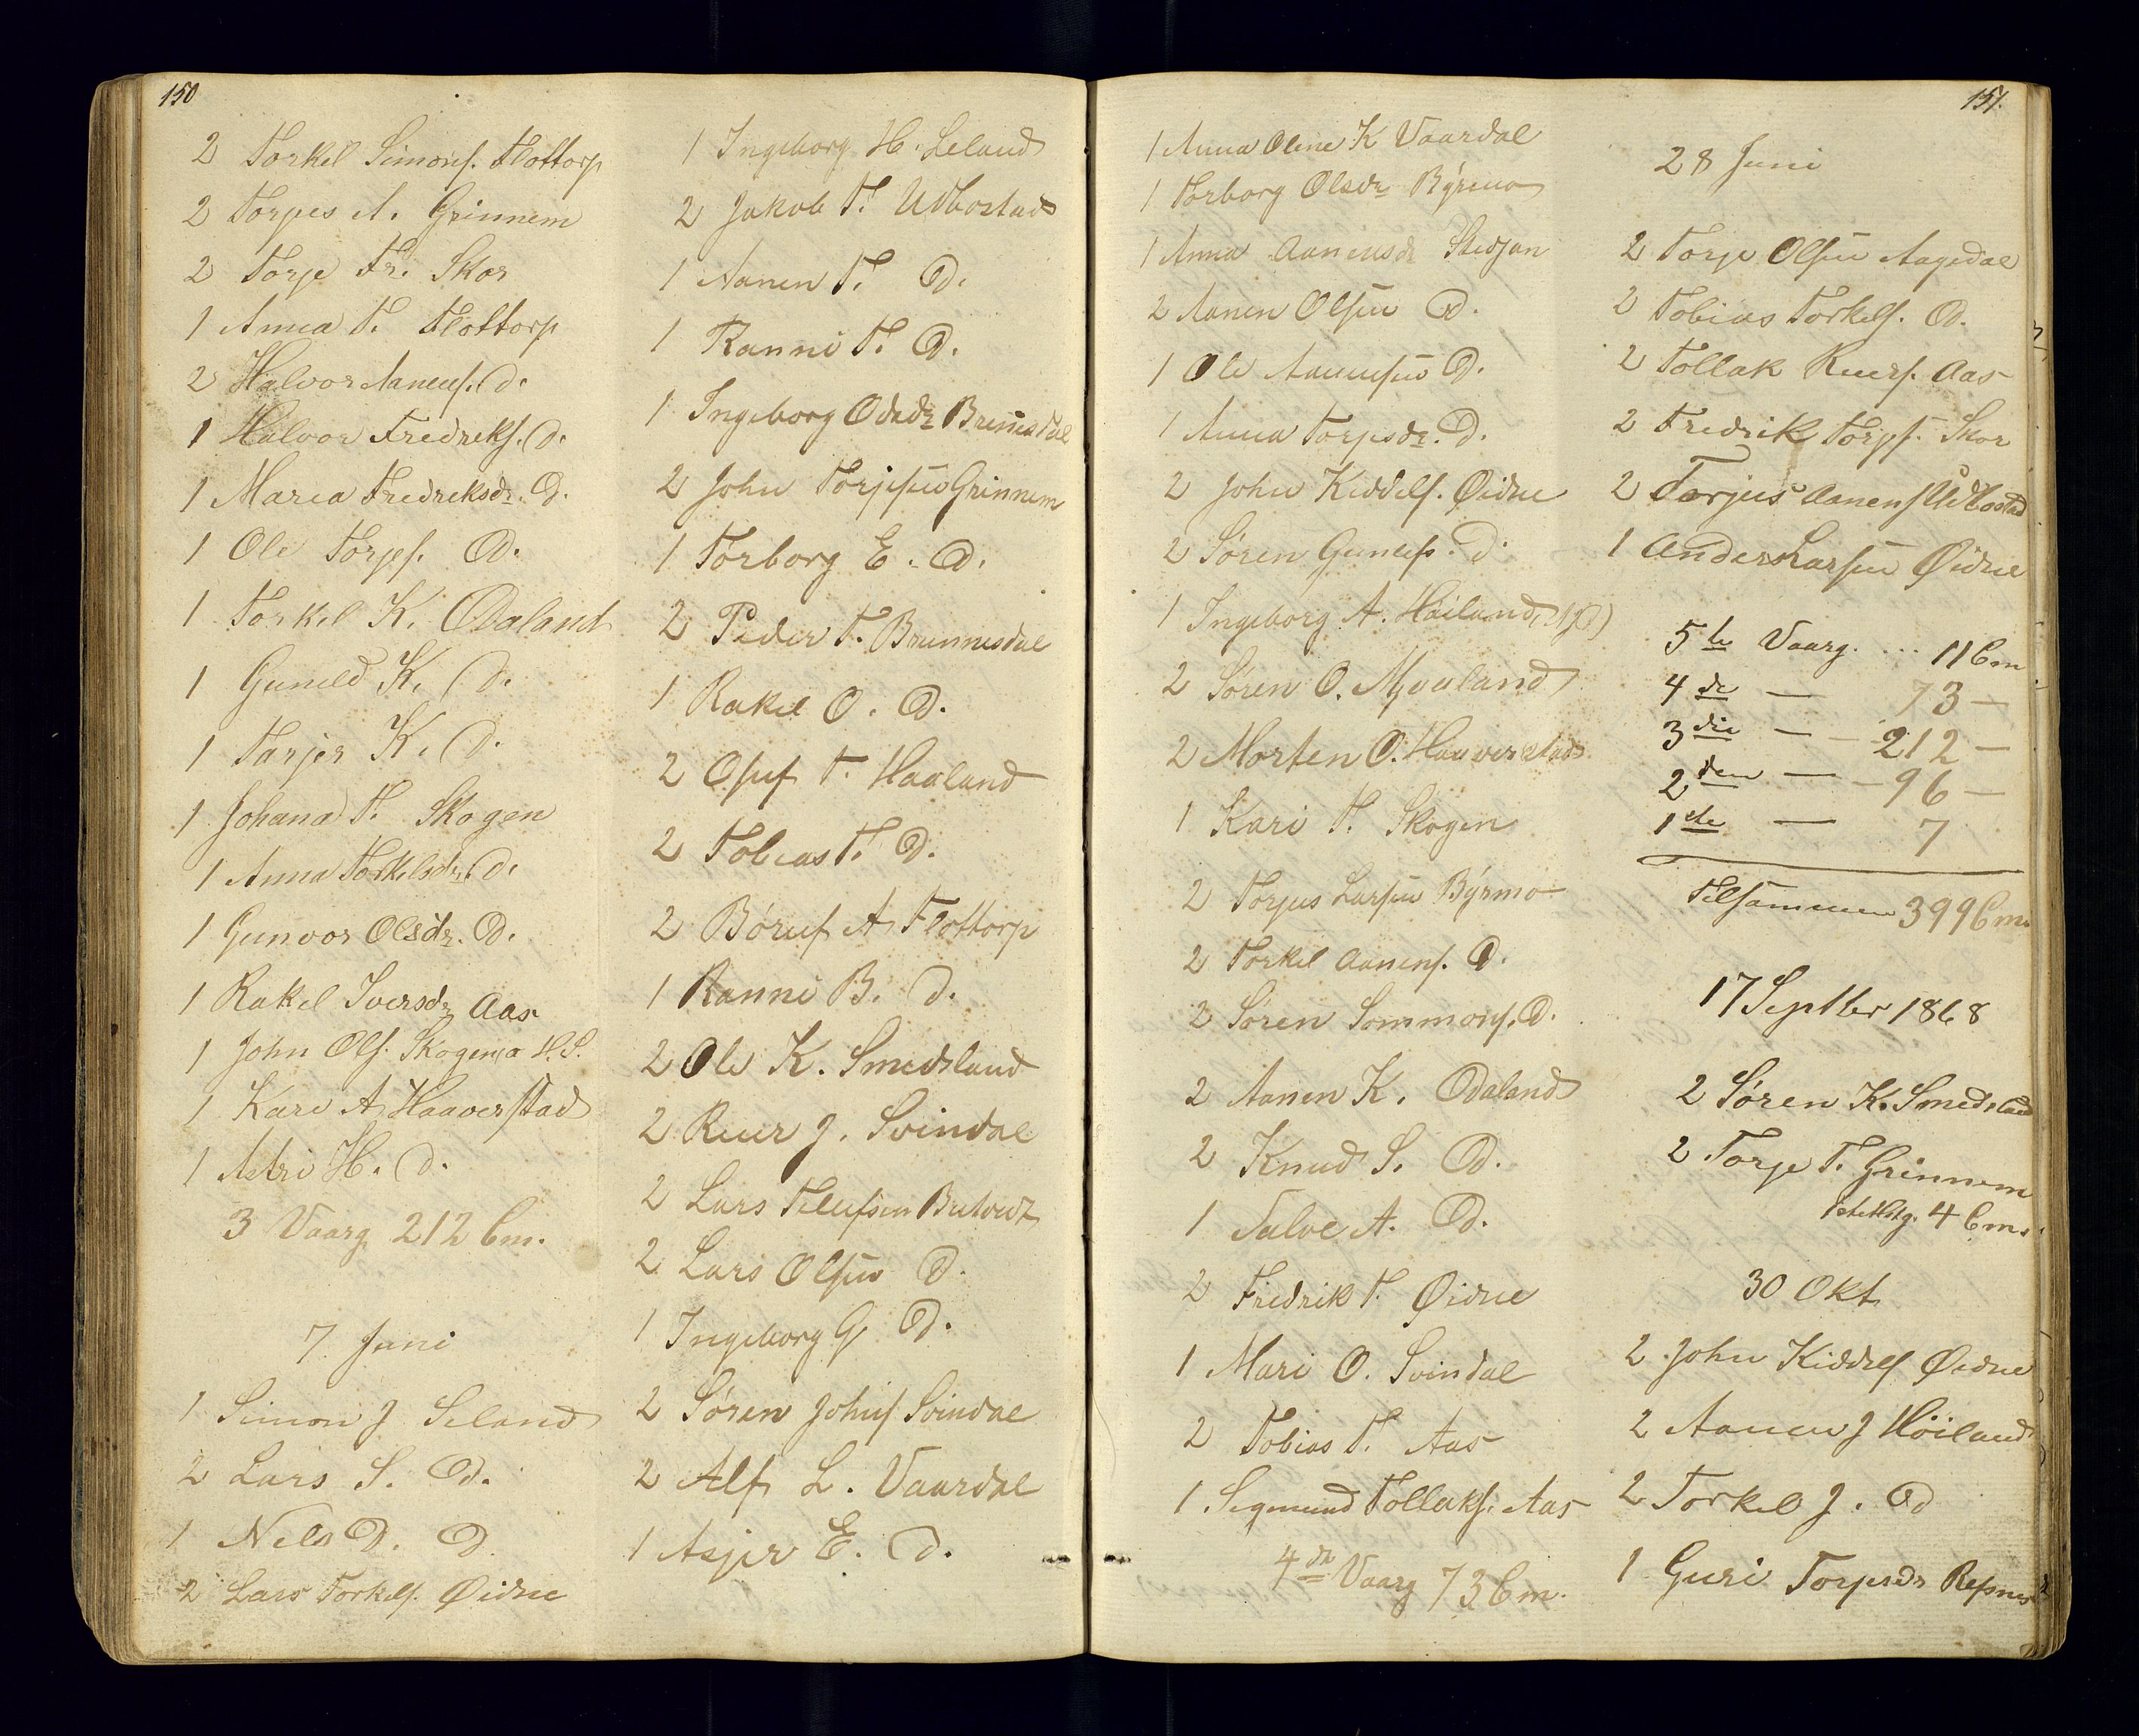 150
2 Torkel Simons. Flottorp
2 Torjes A. Grinnem
2 Torje Fr. Skor
1 Anna T. Flottorp
2 Halvor Aanens. D.
1 Halvor Fredreks. D.
1 Maria Fredreksdr. D.
1 Ole Torjes. D.
1 Torkel K. Odaland
1 Guneld K. D.
1 Tarjer K. D.
1 Johana T. Skogen
1 Anna Torkelsdr. D.
1 Gunvor Olsdr. D.
1 Rakel Iversdr Aas
1 John Ols. Skogen, a H.S.
1 Kari A Haaverstad
1 Astri H. D.
3 Vaarg 212 Em.
7 Juni
1 Simon J Seland
2 Lars S. D.
1 Nels D. D
2 Lars Torkels. Øidne
1 Ingeborg H. Leland
2 Jakob T. Udbostad
1 Aanen T. D.
1 Ranni T. D.
1 Ingeborg Odsdr Brennesdal
2 John Torjesen Grinnem
1 Torborg E. D.
2 Peder T. Brunnesdal
1 Rakel O. D.
2 Osuf T. Haaland
2 Tobias T. D.
2 Børuf A Flottorp
1 Ranni B. D.
2 Ole K. Smedsland
2 Ruer J. Svindal
2 Lars Tellefsen
2 Lars Olsen D.
1 Ingeborg G D.
2 Søren Johns. Svindal
2 Alf L. Vaardal
1 Asjer E. D.
151.
1 Anna Oline K Vaardal
1 Torborg Olsdr Byrmo
1 Anna Aanensdr Stedjan
2 Aanen Olsen D.
1 Ole Aanensen D.
1 Anna Torjesdr. D.
2 John Keddels. Øidne
2 Søren Gunells. D.
1 Ingeborg A. Høiland,
2 Søren O. Mjvaland
2 Morten O. Haaverstad
1 Kari T. Skogen
2 Torjus Larsen Byrmo
2 Torkel Aanens. D.
2 Søren Sommons. D.
2 Aanen K. Odaland
2 Knud S. D.
1 Salve A. D.
2 Fredrik T. Øidne
1 Mari O. Svindal
2 Tobias T. Aas
1 Segmund Tollaks. Aas
4de Vaarg 73 Em.
28 Juni
2 Torje Olsen Aagedal
2 Tobias Torkels. D.
2 Tollak Ruers. Aas
2 Fredrik Torjes. Skor
2 Torjus Aanens Udbostad
1 Anders Larsen Øidne
5te Vaarg. ... 11 Em
4de — 73 —
3die — — 212 —
2den — — 96 —
1ste — 7
Tilsammen 399 Em.
17 Septber 1868
2 Søren K. Smedsland
2 Torje T. Grinnem
1ste Hstg. 4 Em.
30 Okt
2 John Kiddels Øidne
2 Aanen J Höiland
2 Torkel J. D
1 Guri Torjesdr Refsnes